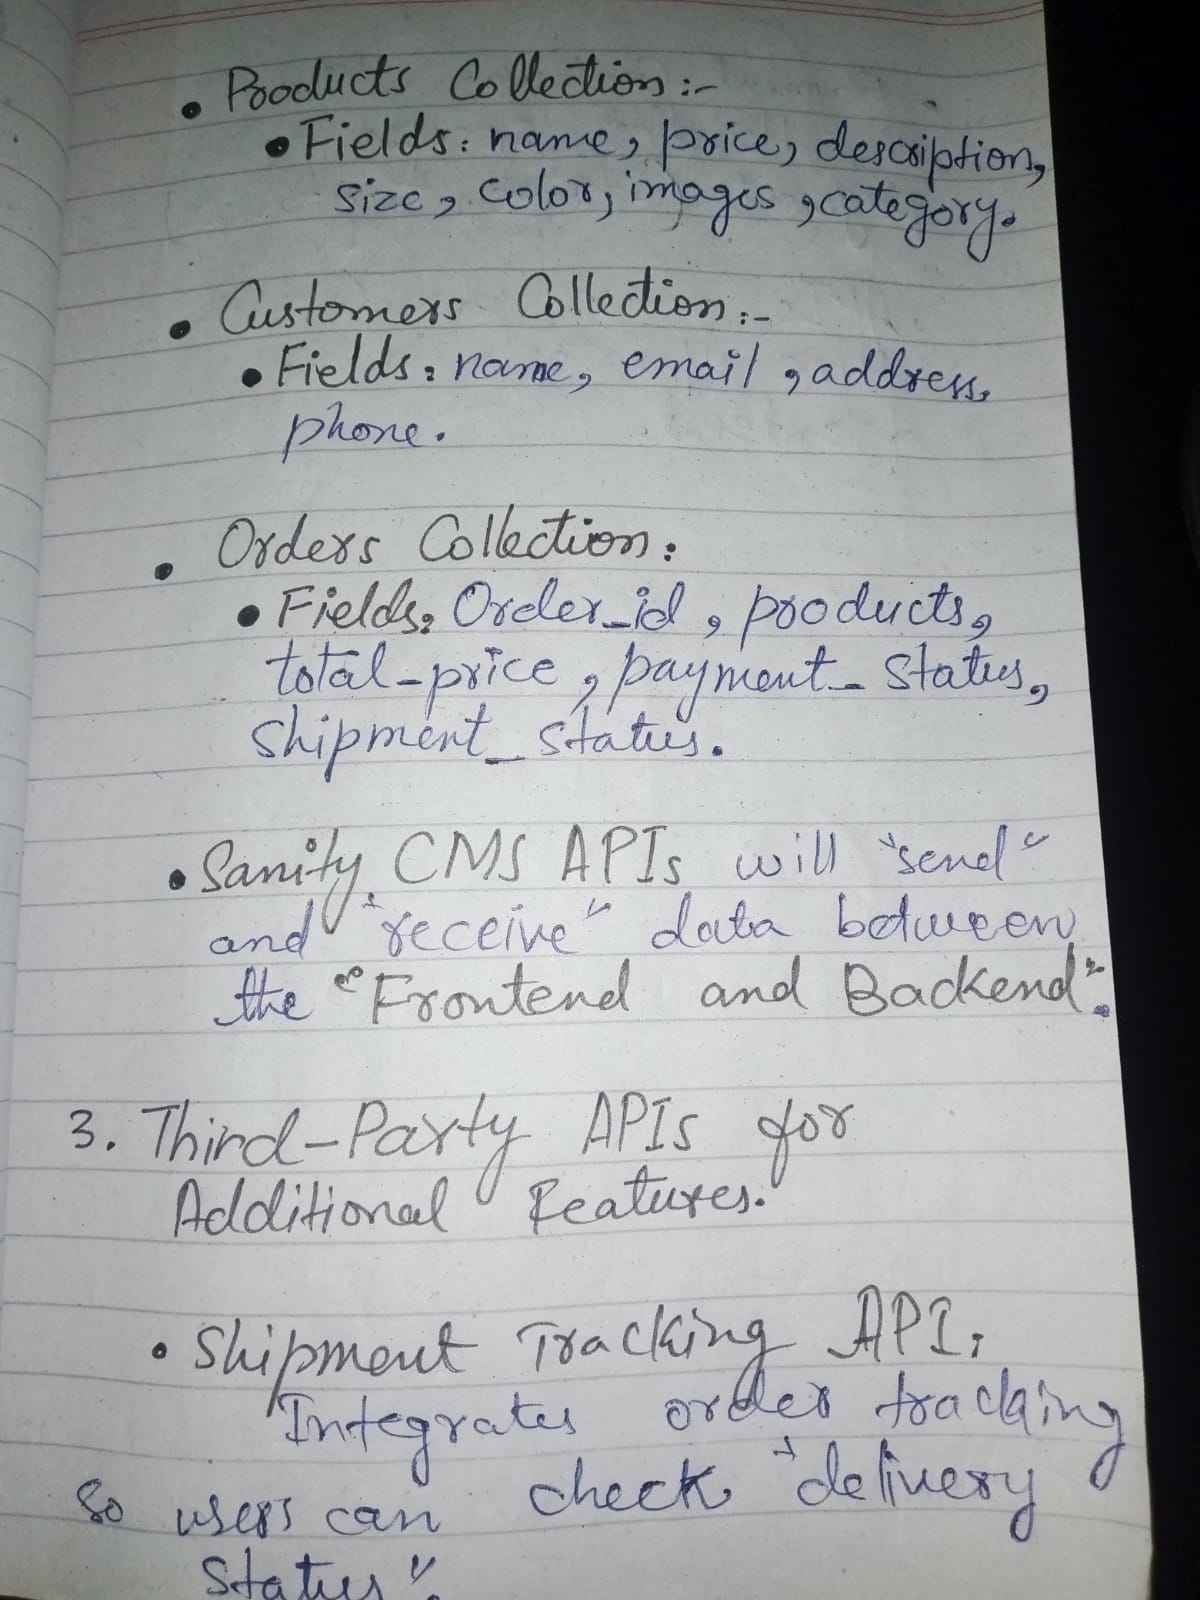 • Products Collection :-
• Fields: name, price, description,
size, color, images, category.
• Customers Collection :-
• Fields: name, email, address,
phone.
• Orders Collection:
• Fields: Order_id, products,
total-price, payment_status,
shipment_status.
• Sanity CMS APIs will "send"
and "receive" data between
the "Frontend and Backend".
3. Third-Party APIs for
Additional Features.
• Shipment Tracking API:
Integrates order tracking
so users can check "delivery
status".